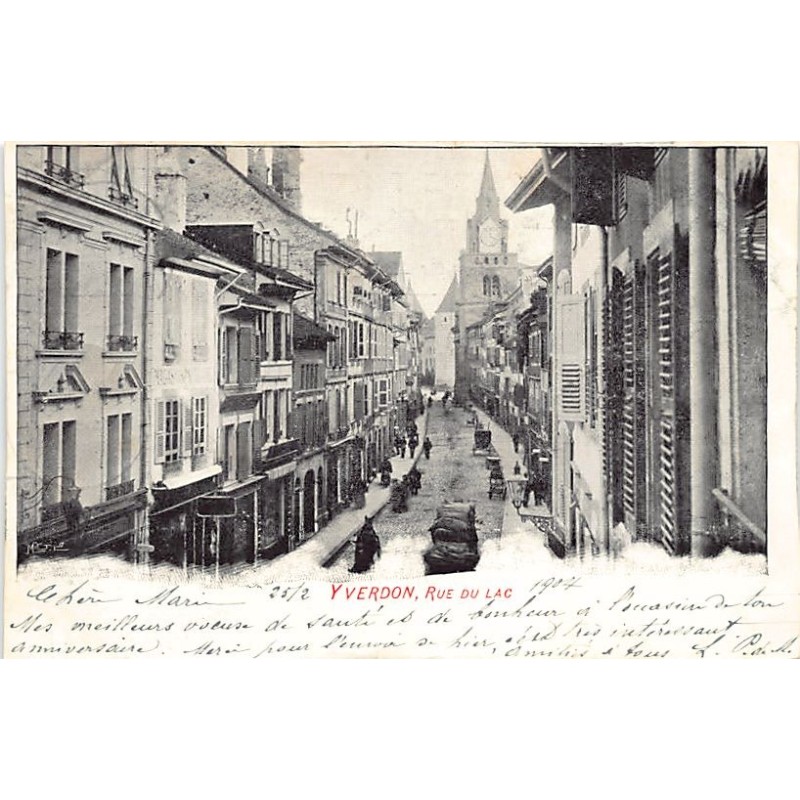 YVERDON, RUE DU LAC
Chère Marie 25/2 1904
Mes meilleurs voeux de santé et de bonheur à l'occasion de ton
anniversaire. Merci pour l'envoi de hier, est très intéressant.
amitiés à tous L. P. de M.